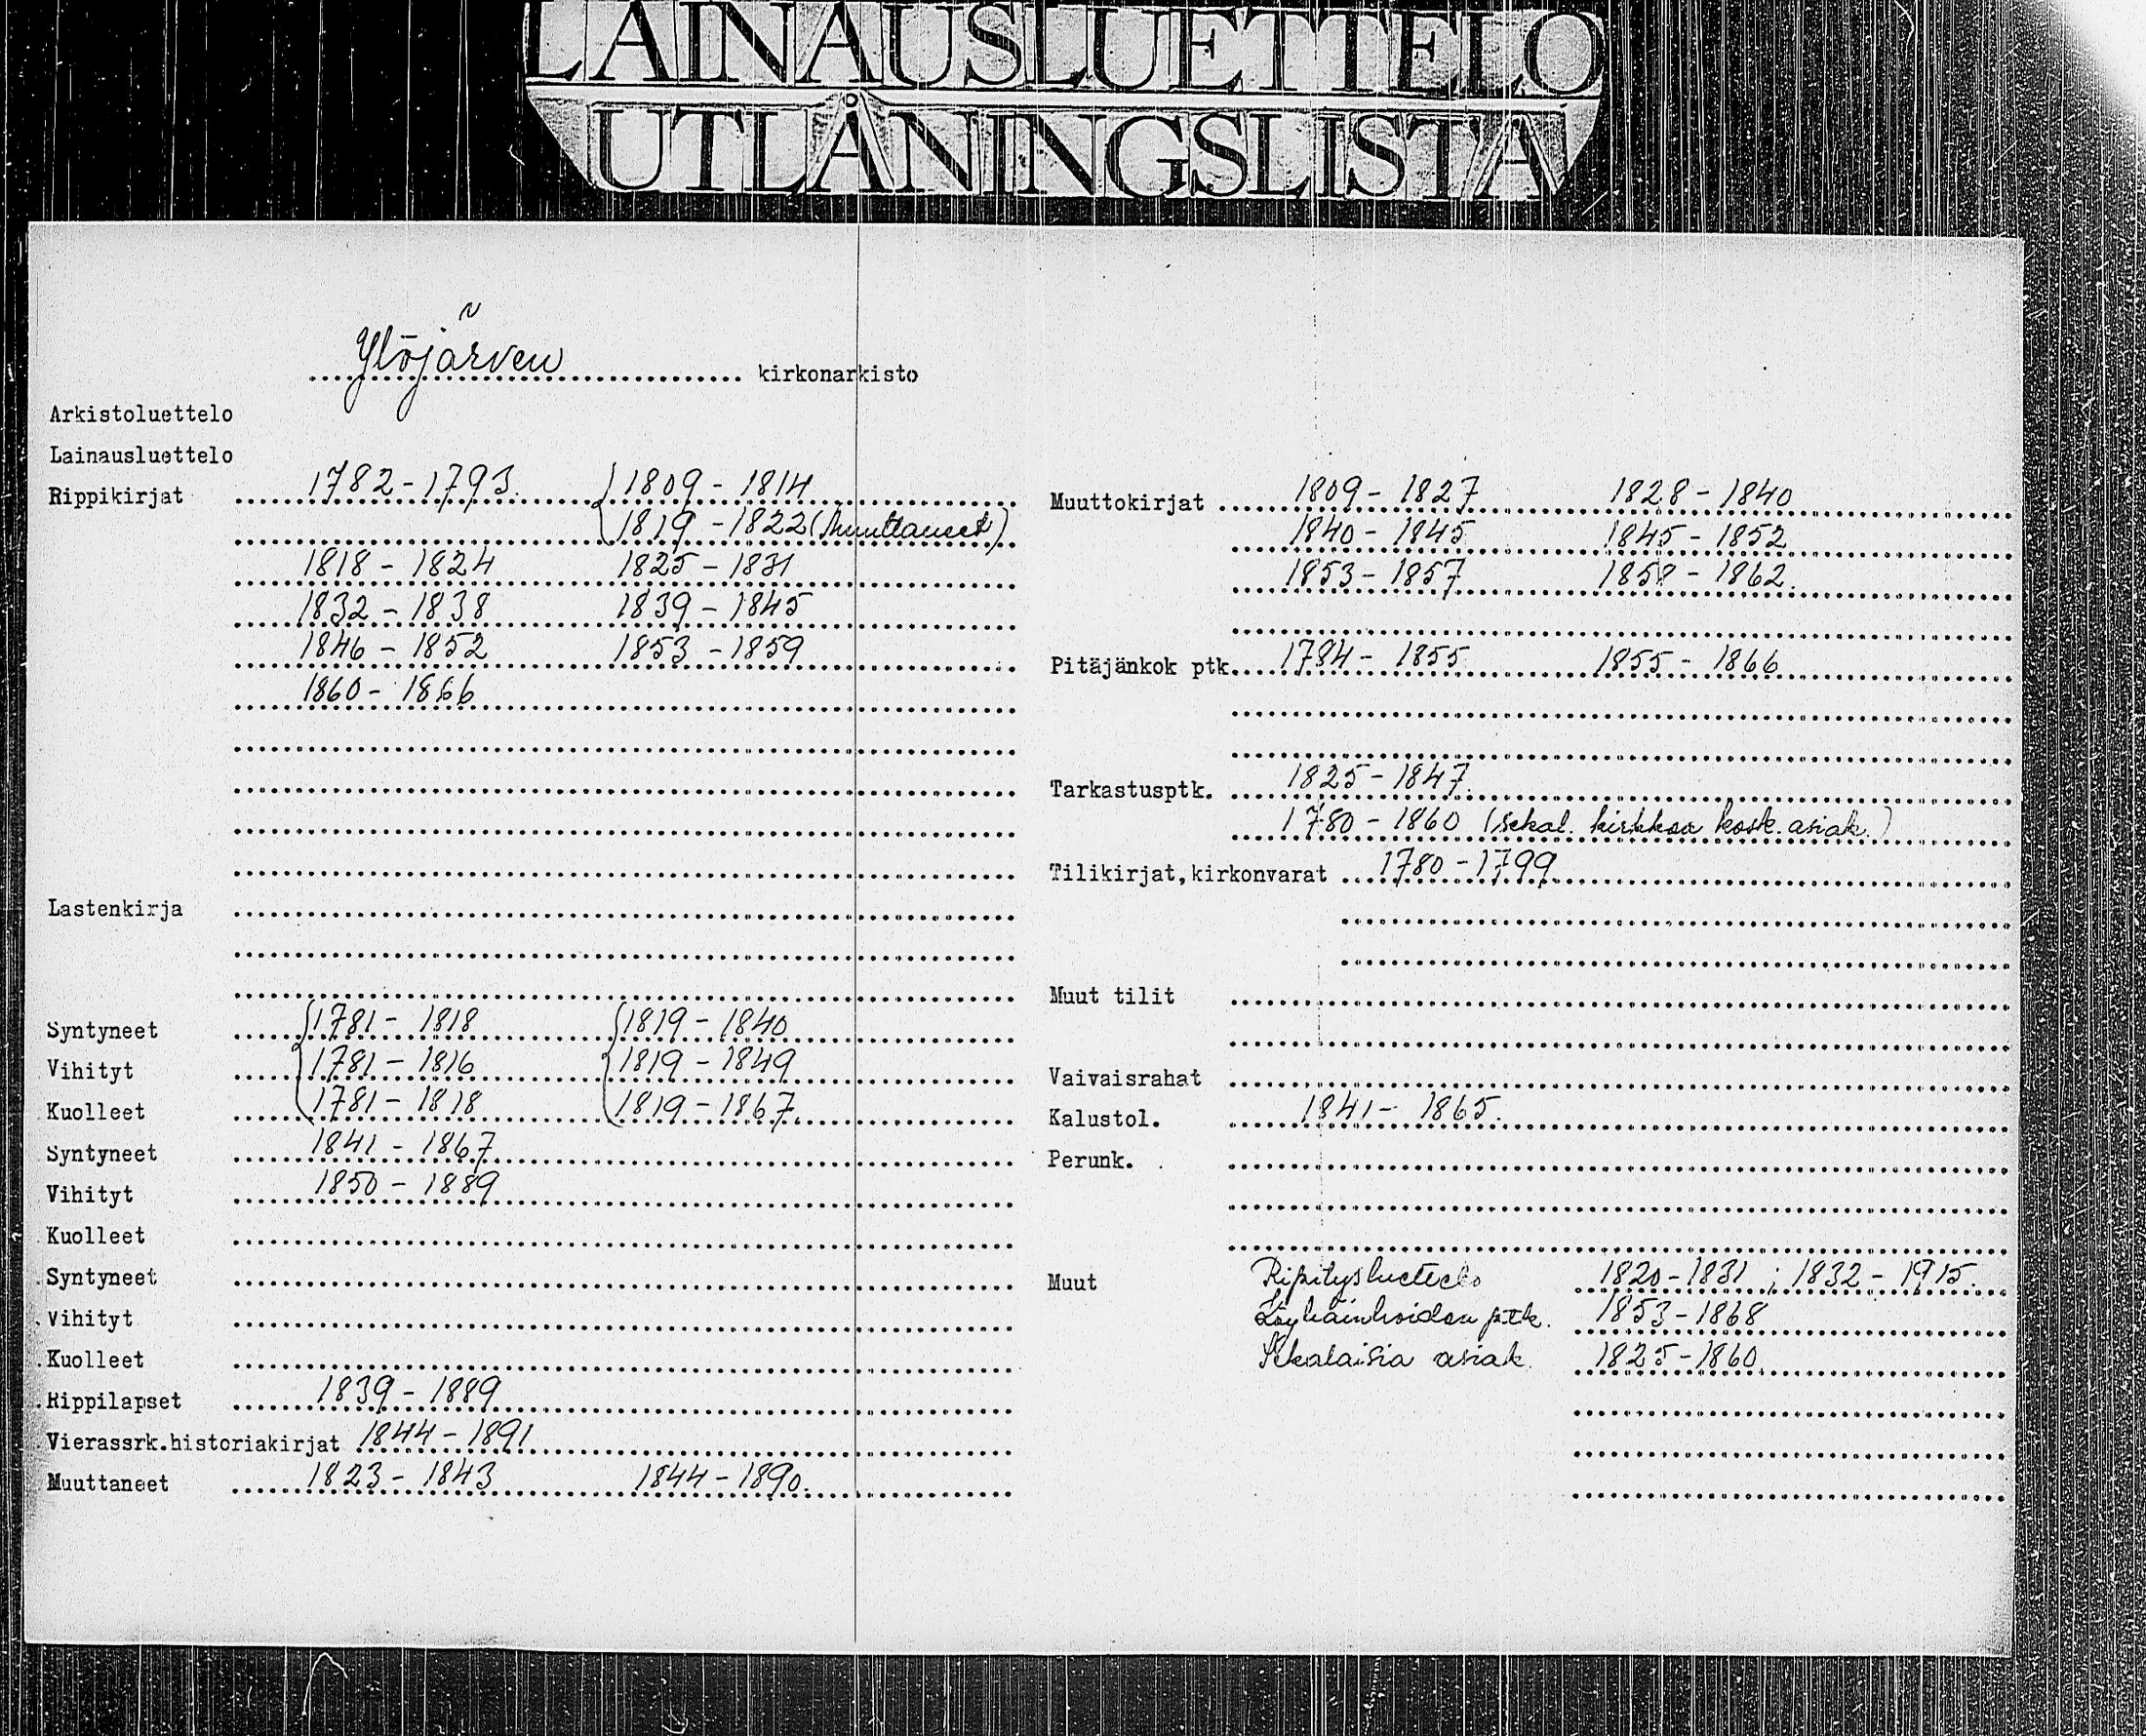 LAINAUSLUETTELO
UTLÅNINGSLISTA
Ylöjärven kirkonarkisto
Arkistoluettelo
Lainausluettelo
Rippikirjat 1782-1793. 1809 - 1814
1819 - 1822 (Muuttaneet)
1818 - 1824 1825 - 1831
1832 - 1838 1839 - 1845
1846 - 1852 1853 - 1859
1860 - 1866
Lastenkirja
Syntyneet 1781 - 1818 1819 - 1840
Vihityt 1781 - 1816 1819 - 1849
Kuolleet 1781 - 1818 1819 - 1867.
Syntyneet 1841 - 1867
Vihityt 1850 - 1889
Kuolleet
Syntyneet
Vihityt
Kuolleet
Rippilapset 1839 - 1889
Vierassrk.historiakirjat 1844 - 1891
Muuttaneet 1823 - 1843 1844 - 1890.
Muuttokirjat 1809 - 1827 1828 - 1840
1840 - 1845 1845 - 1852
1853 - 1857 1858 - 1862.
Pitäjänkok ptk. 1784 - 1855 1855 - 1866
Tarkastusptk. 1825 - 1847.
1780 - 1860 (sekal. kirkkoa kosk. asiak.)
Tilikirjat,kirkonvarat 1780 - 1799
Muut tilit
Vaivaisrahat
Kalustol. 1841 - 1865.
Perunk.
Muut Ripitysluettelo 1820-1831 ; 1832 - 1915.
Köyhäinhoidon ptk. 1853 - 1868
Sekalaisia asiak. 1825 - 1860.